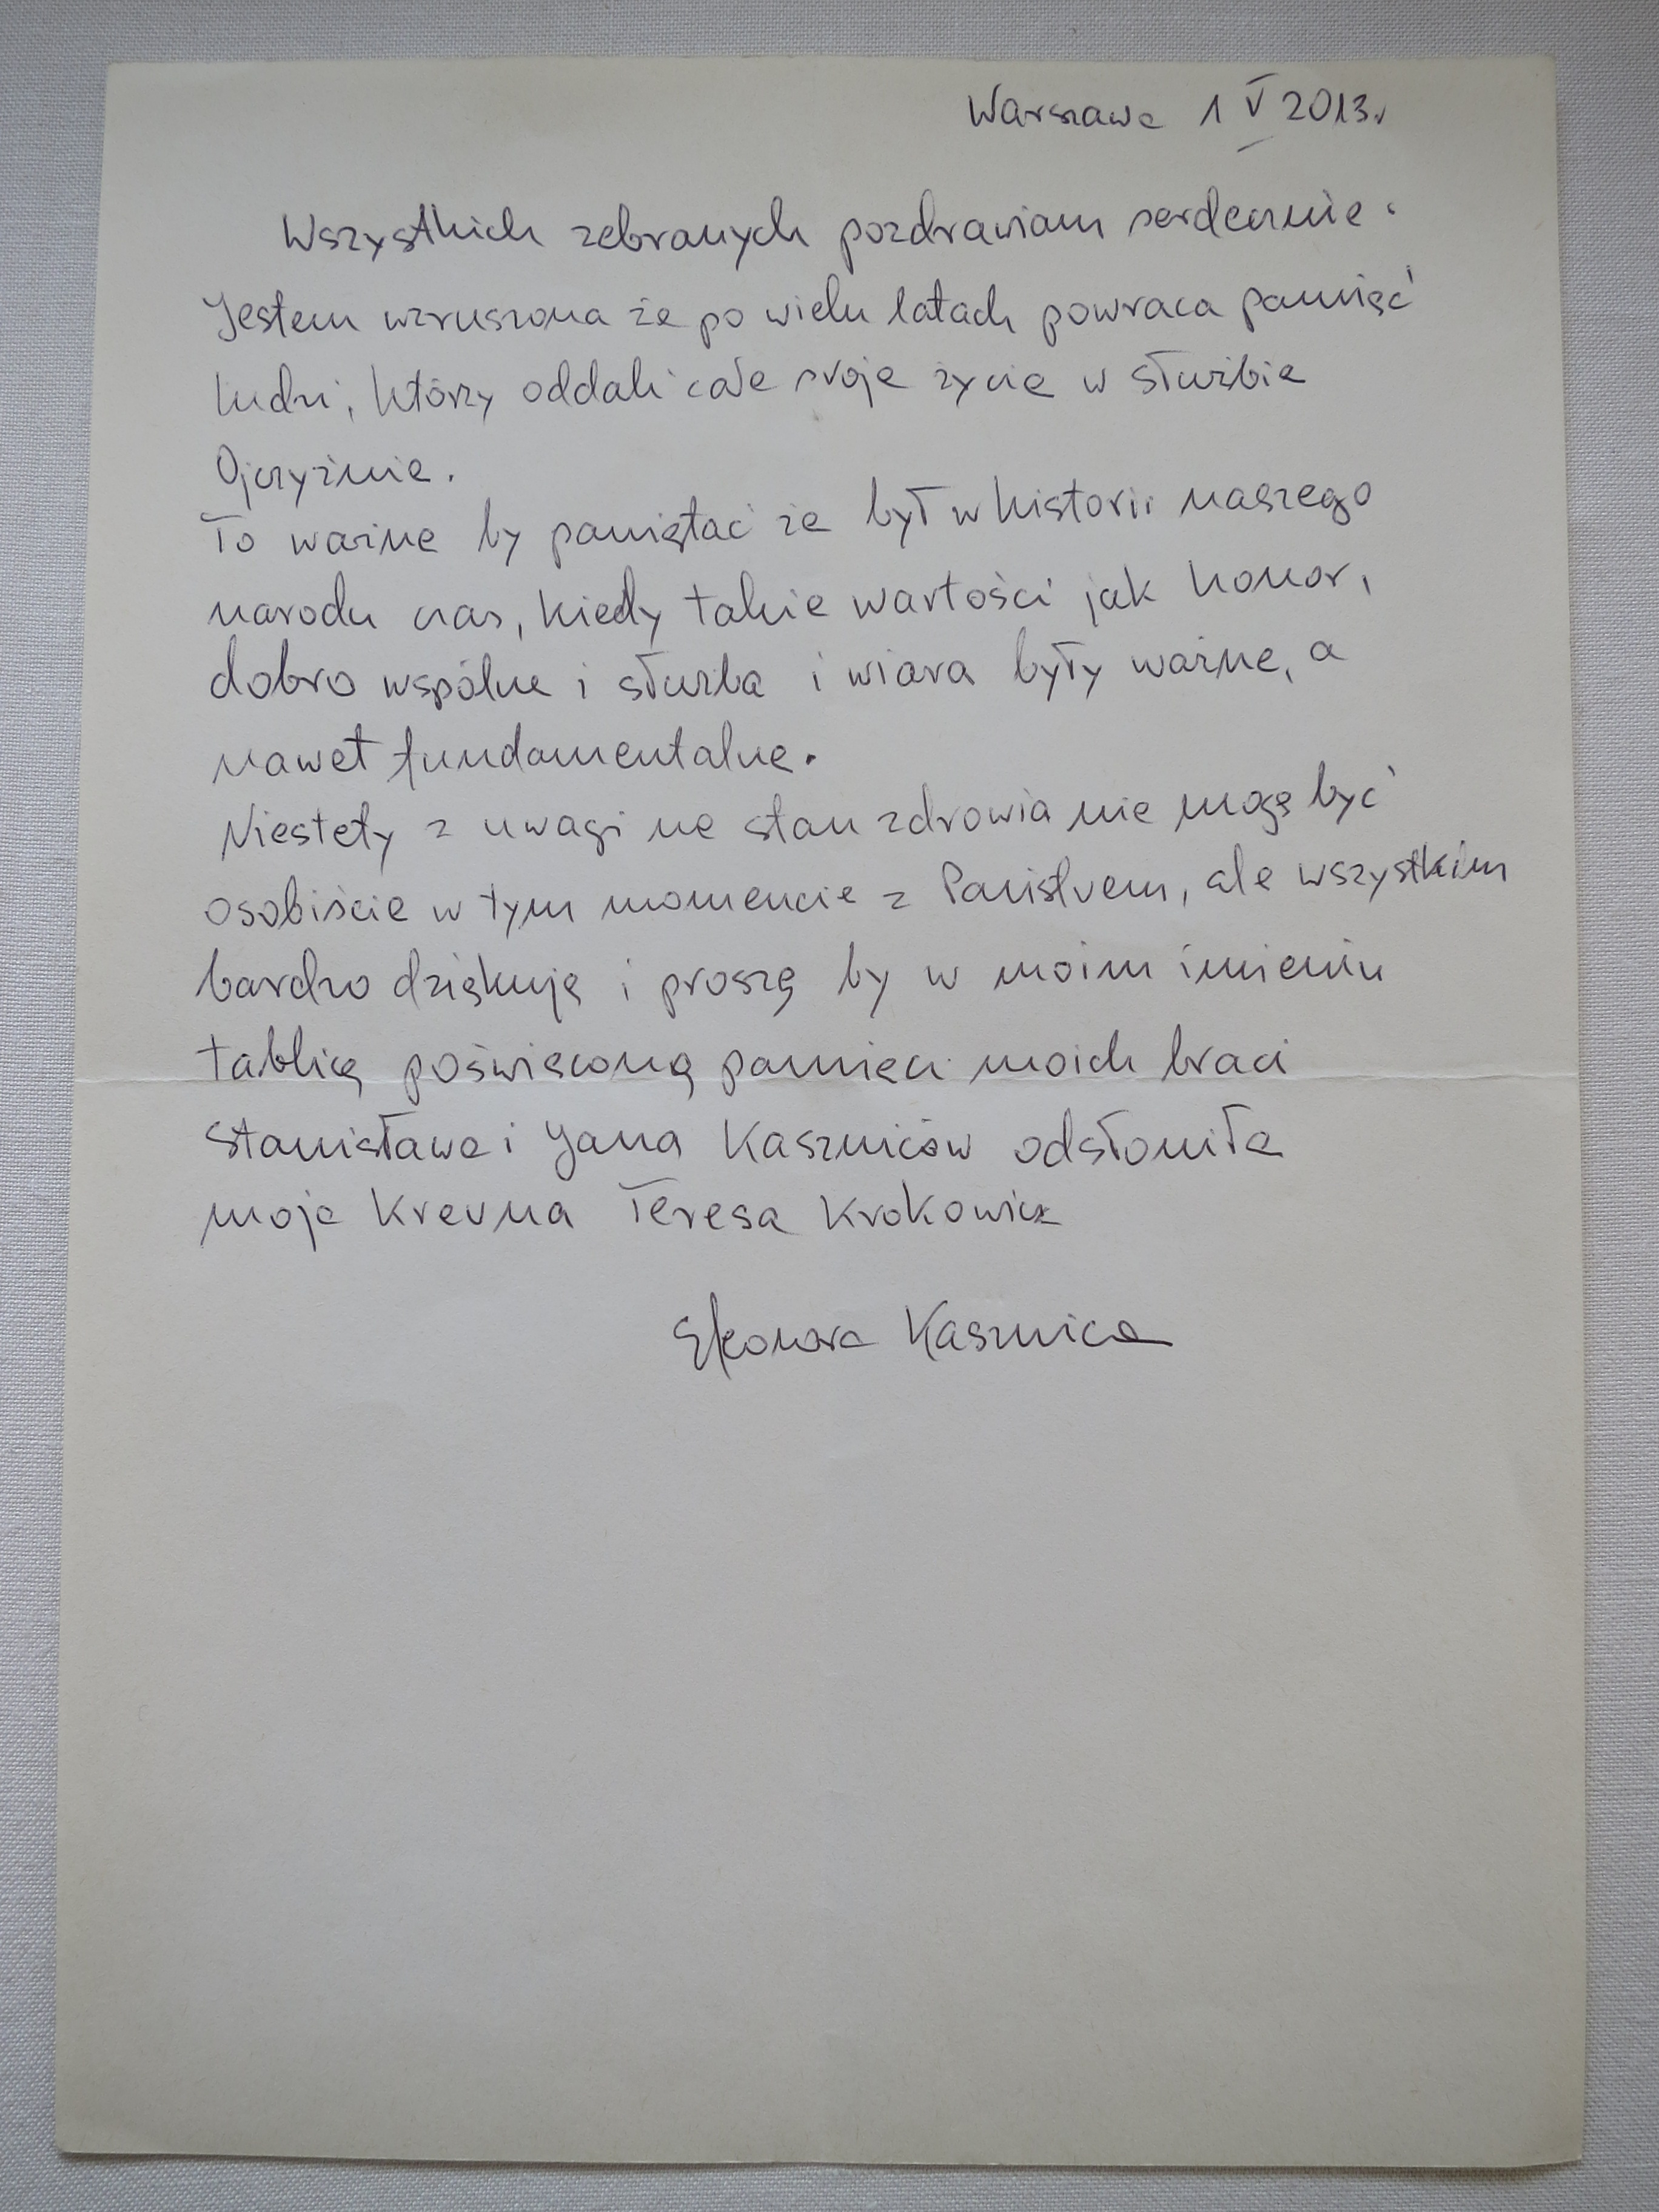 Warszawa 1 V 2013.
Wszystkich zebranych pozdrawiam serdecznie.
Jestem wzruszona że po wielu latach powraca pamięć
ludzi, którzy oddali całe swoje życie w służbie
Ojczyźnie.
To ważne by pamiętać że był w historii naszego
narodu czas, kiedy takie wartości jak honor,
dobro wspólne i służba i wiara były ważne, a
nawet fundamentalne.
Niestety z uwagi na stan zdrowia nie mogę być
osobiście w tym momencie z Państwem, ale wszystkim
bardzo dziękuję i proszę by w moim imieniu
tablicę poświęconą pamięci moich braci
Stanisława i Jana Kaszniców odsłoniła
moja krewna Teresa Krokowicz
Eleonora Kasznica